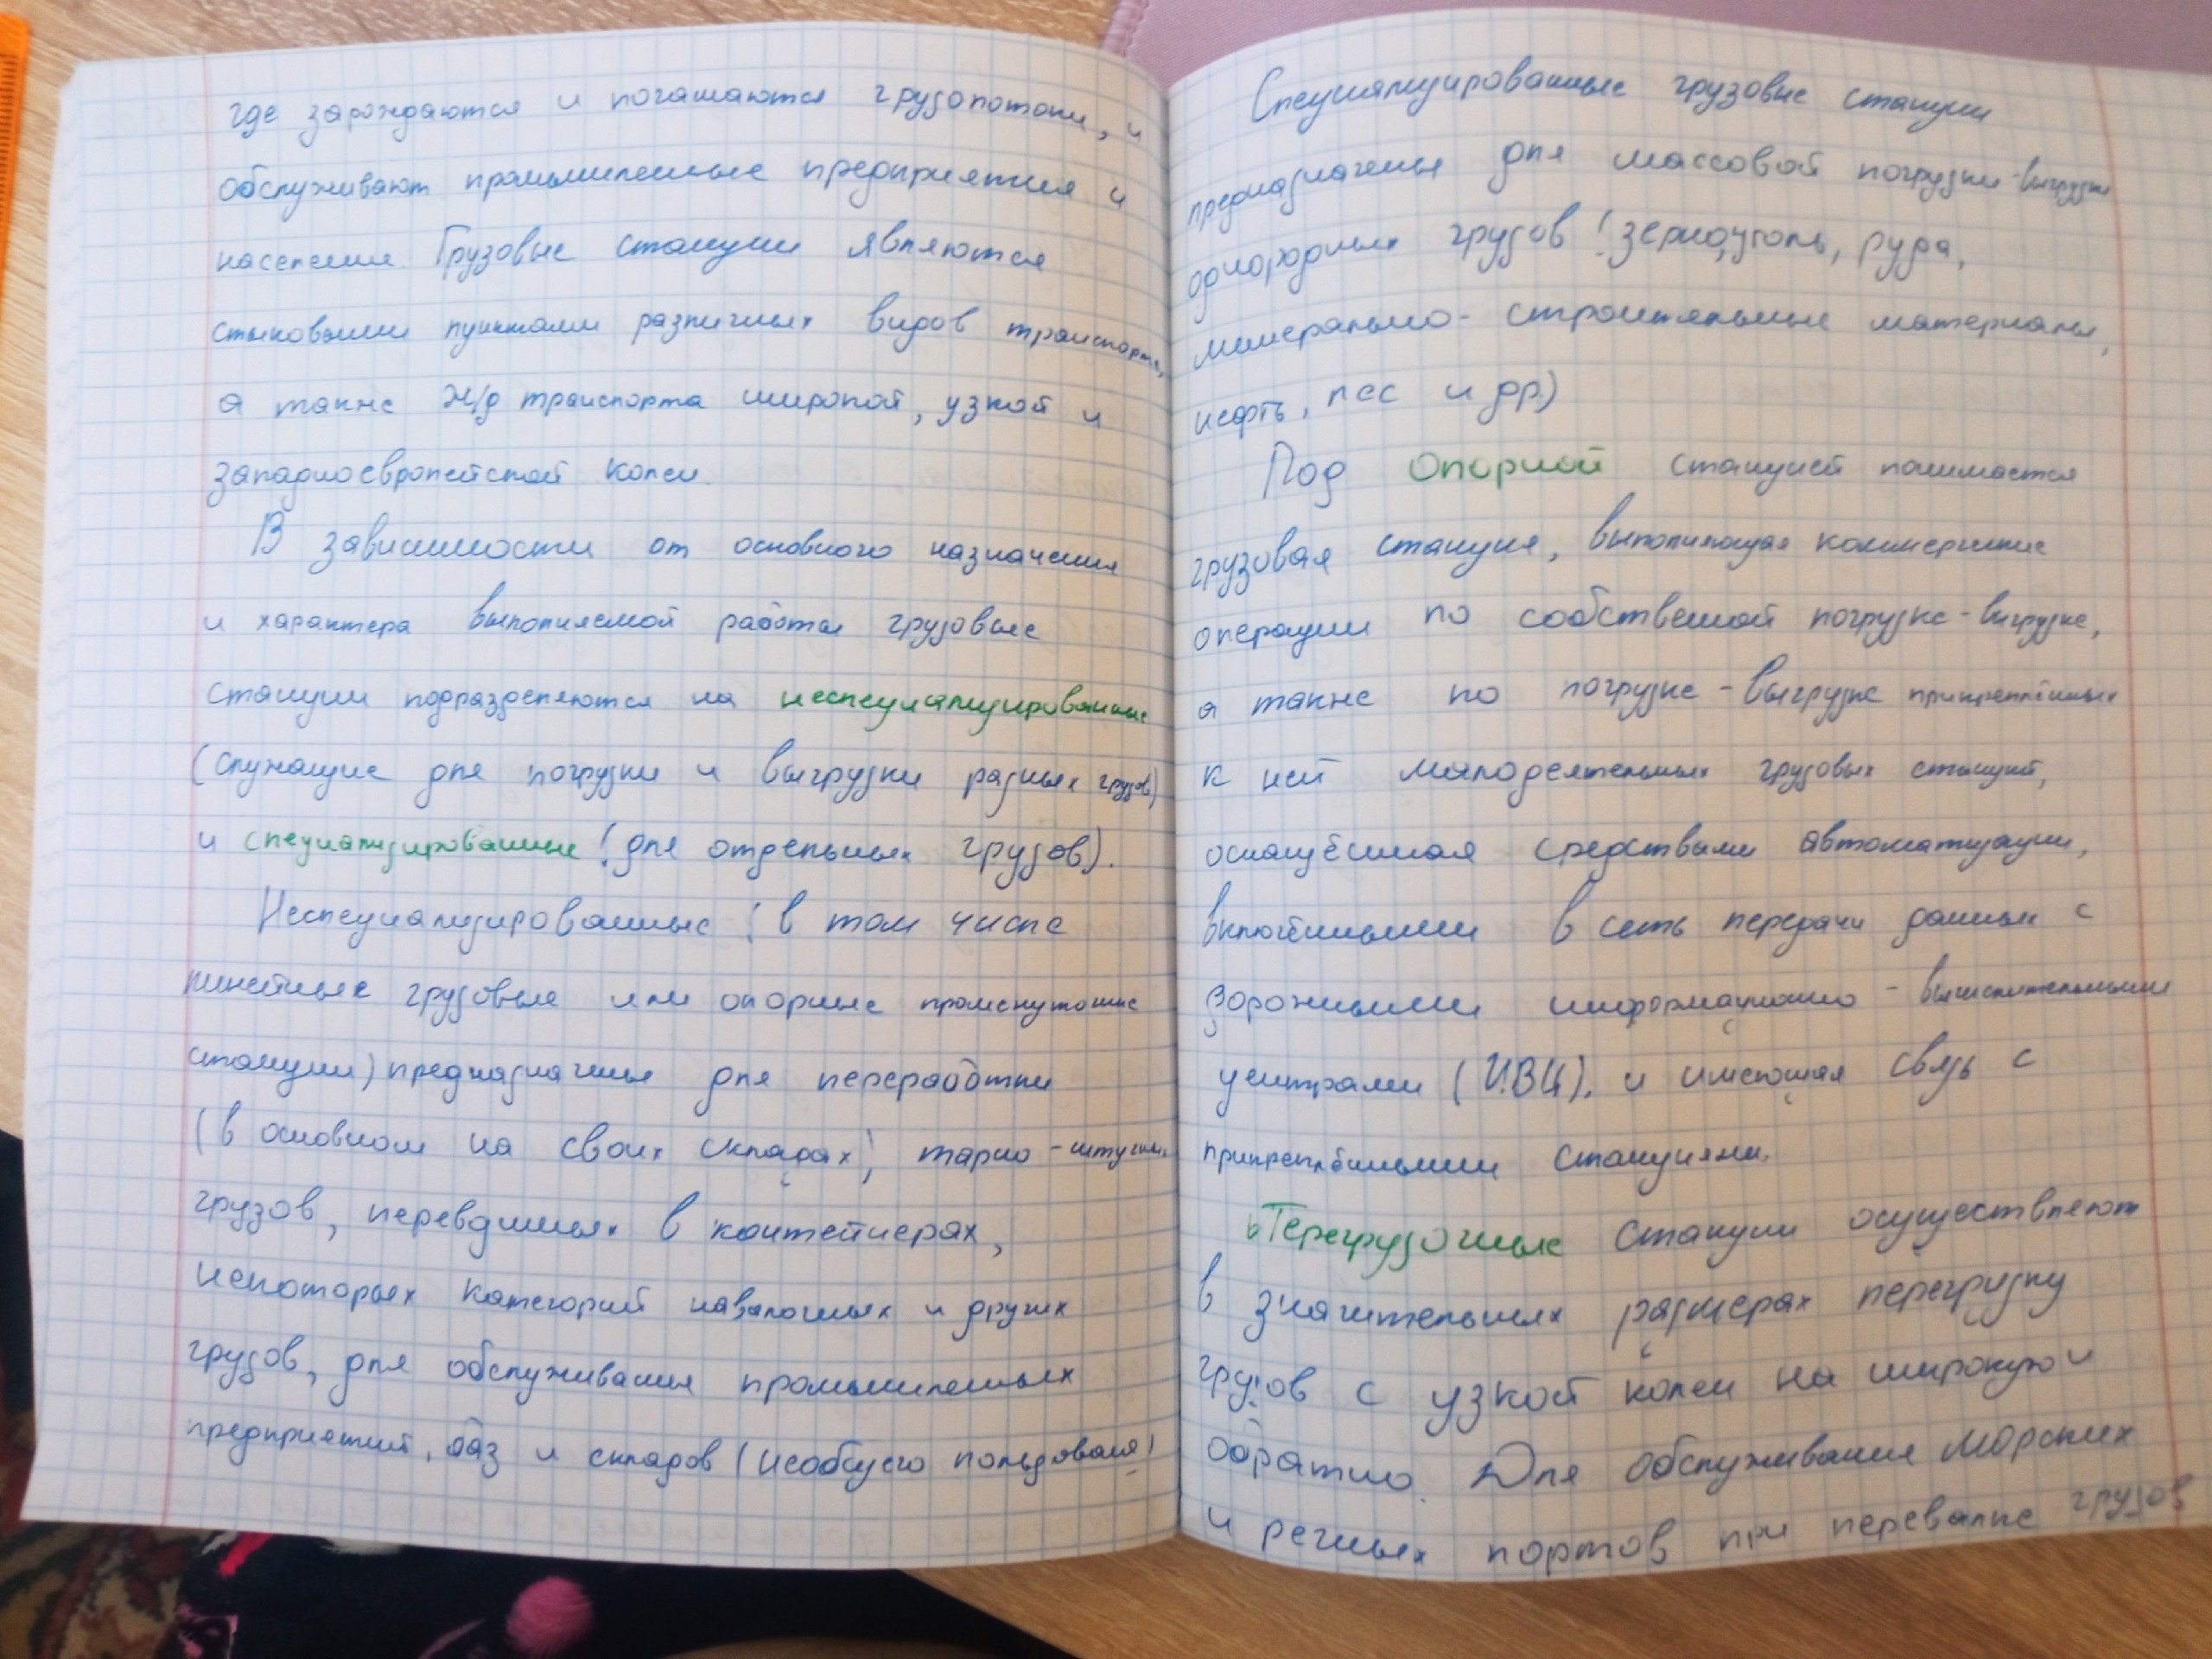 где зарождаются и погашаются грузопотоки, и
обслуживают промышленные предприятия и
население. Грузовые станции являются
стыковыми пунктами различных видов транспорта,
а также ж/д транспорта широкой, узкой и
западноевропейской колеи.
В зависимости от основного назначения
и характера выполняемой работы грузовые
станции подразделяются на неспециализированные
(служащие для погрузки и выгрузки разных грузов)
и специализированные (для отдельных грузов).
Неспециализированные (в том числе
линейные грузовые или опорные промежуточные
станции) предназначены для переработки
(в основном на своих складах) тарно-штучных
грузов, перевозимых в контейнерах,
некоторых категорий навалочных и других
грузов, для обслуживания промышленных
предприятий, баз и складов (необщего пользования)
Специализированные грузовые станции
предназначены для массовой погрузки-выгрузки
однородных грузов (зерно, уголь, руда,
минерально-строительные материалы,
нефть, лес и др.)
Под опорной станцией понимается
грузовая станция, выполняющая коммерческие
операции по собственной погрузке-выгрузке,
а также по погрузке-выгрузке прикреплённых
к ней малодеятельных грузовых станций,
оснащённая средствами автоматизации,
включёнными в сеть передачи данных с
дорожными информационно-вычислительными
центрами (ИВЦ). и имеющая связь с
прикреплёнными станциями.
Перегрузочные станции осуществляют
в значительных размерах перегрузку
грузов с узкой колеи на широкую и
обратно. Для обслуживания морских
и речных портов при перевалке грузов